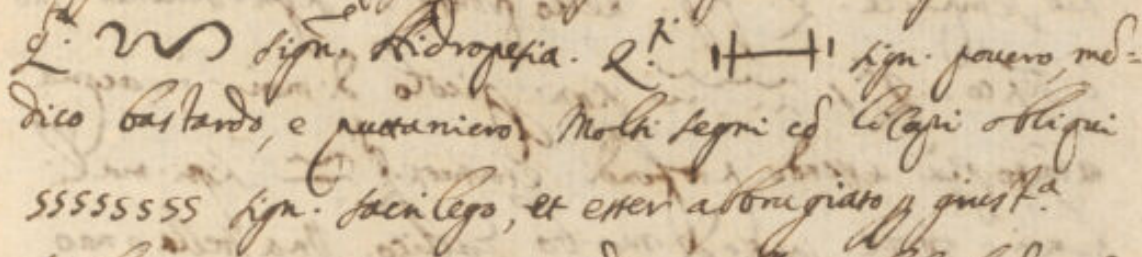 Q.ª sign.ᵉ Hidropesia. Q.ª sign. pouero, me-
dico bastardo, e puttaniero. Molti segni cõ obliqui
ssssssss sign. sacrilego, et esser abbrugiato p giust.ª